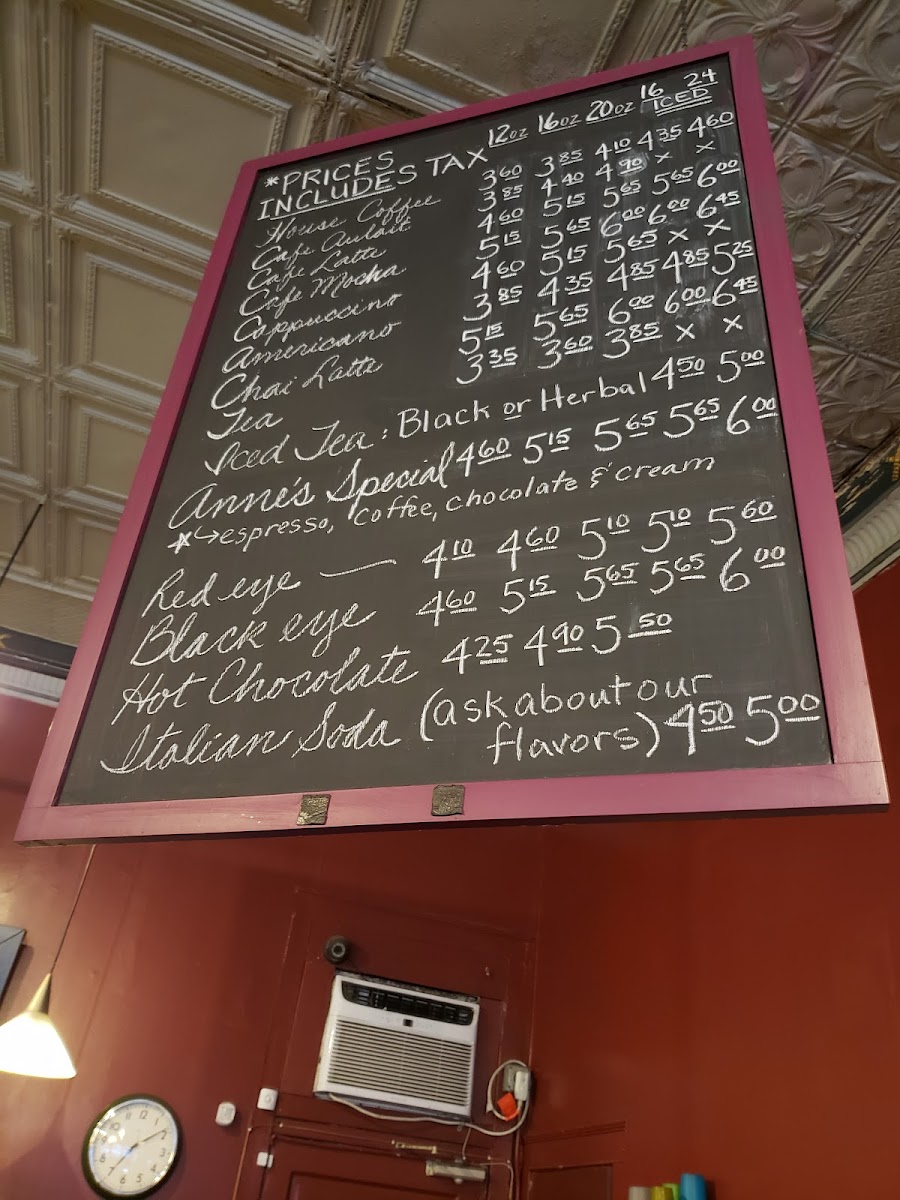 12oz 16oz 20oz 16 24
ICED
*PRICES
INCLUDES TAX
House Coffee 3.60 3.85 4.10 4.35 4.60
Cafe Aulait 3.85 4.40 4.90 x x
Cafe Latte 4.60 5.15 5.65 5.65 6.00
Cafe Mocha 5.15 5.65 6.00 6.00 6.45
Cappuccino 4.60 5.15 5.65 x x
Americano 3.85 4.35 4.85 4.85 5.25
Chai Latte 5.15 5.65 6.00 6.00 6.45
Tea 3.35 3.60 3.85 x x
Iced Tea: Black or Herbal 4.50 5.00
Anne's Special 4.60 5.15 5.65 5.65 6.00
*↳espresso, coffee, chocolate & cream
Red eye — 4.10 4.60 5.10 5.10 5.60
Black eye 4.60 5.15 5.65 5.65 6.00
Hot Chocolate 4.25 4.90 5.50
Italian Soda (ask about our
flavors) 4.50 5.00